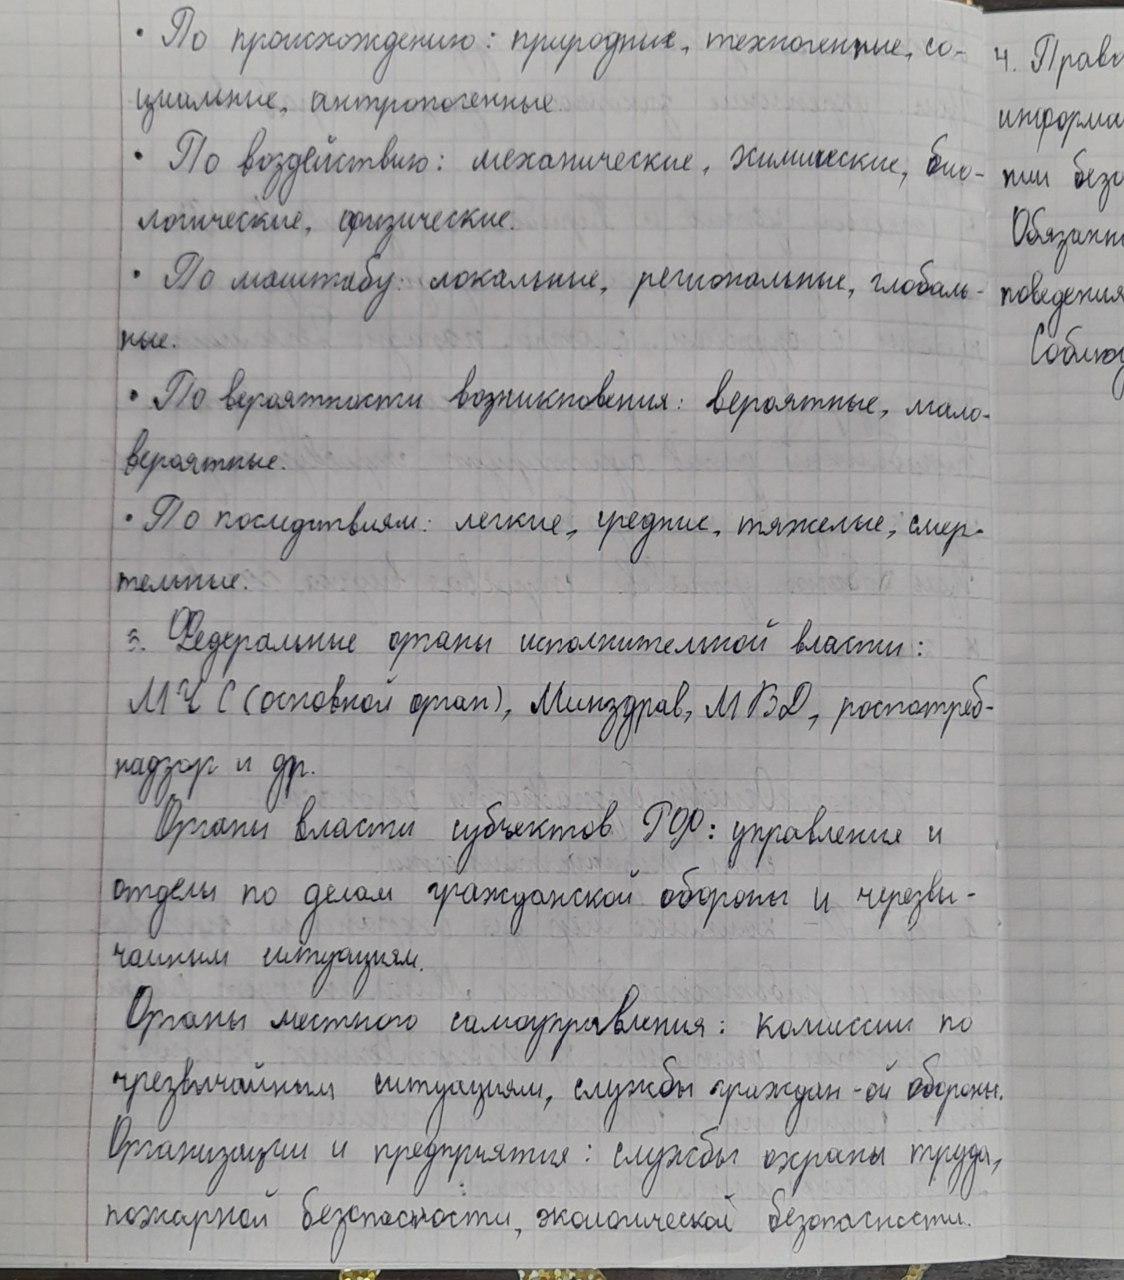 • По происхождению: природные, техногенные, со-
циальные, антропогенные
• По воздействию: механические, химические, био-
логические, физические.
• По маштабу: локальные, региональные, глобаль-
ные.
• По вероятности возникновения: вероятные, мало-
вероятные.
• По последствиям: легкие, средние, тяжелые, смер-
тельные.
3. Федеральные органы исполнительной власти:
МЧС (основной орган), Минздрав, МВД, роспотреб-
надзор и др.
Органы власти субъектов РФ: управления и
отделы по делам гражданской обороны и черезвы-
чайным ситуациям.
Органы местного самоуправления: комиссии по
чрезвычайным ситуациям, службы граждан-ой обороны.
Организации и предприятия: службы охраны труда,
пожарной безопасности, экологической безопасности.
4. Права
информа
нии безо
Обязанн
поведения
Соблюд